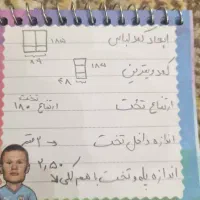 ابعاد کمد لباس
۱۸۵
۸۹
کمد ویترین
۱۸۵
۴۸
ارتفاع تخت
ارتفاع تخت ۱۸۰
اندازه داخل تخت → ۲ متر
اندازه پله و تخت با هم کلی ۲,۵۰